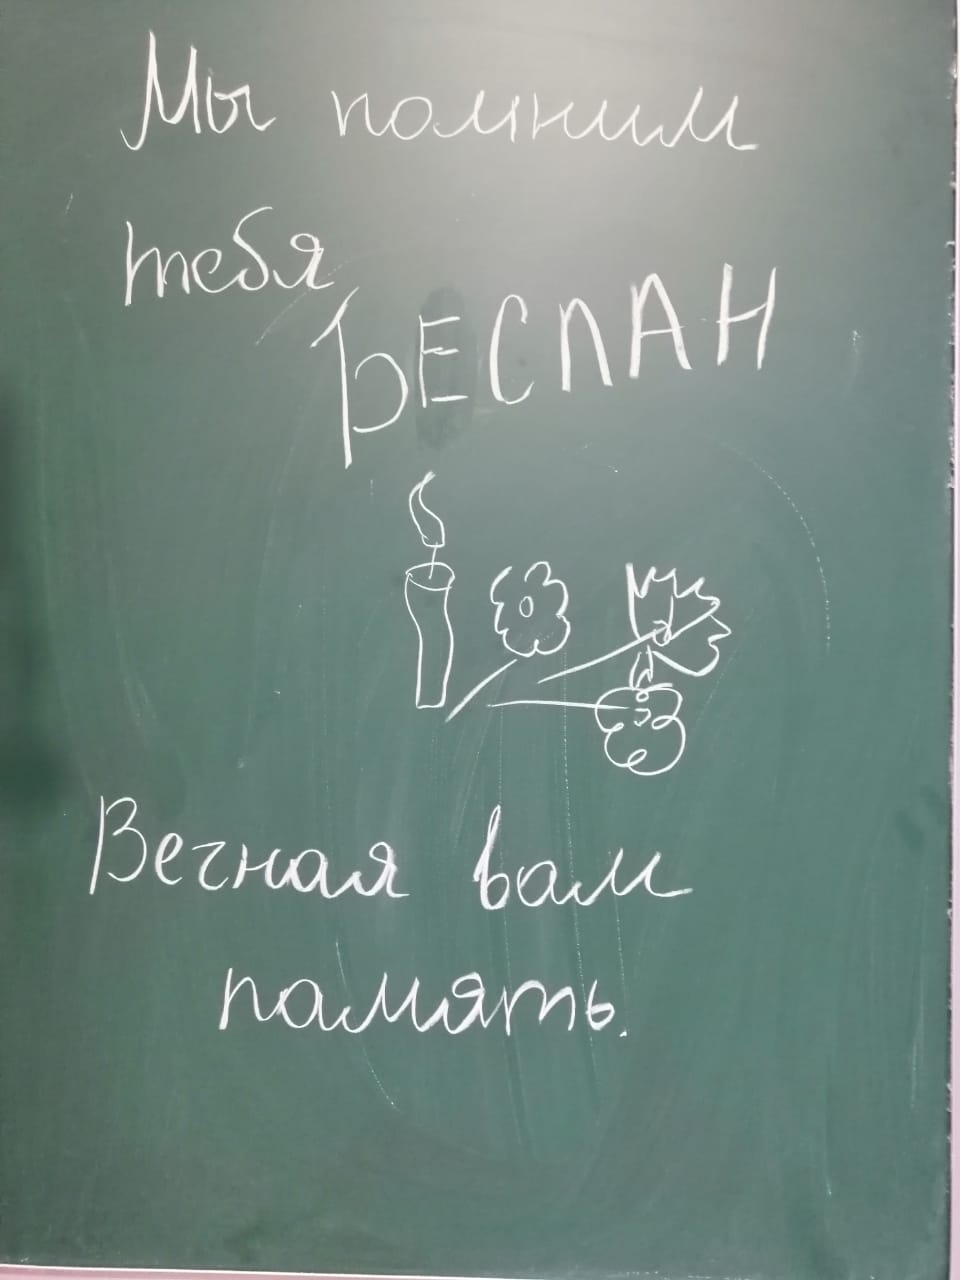 Мы помним
тебя
БЕСЛАН
Вечная вам
память.